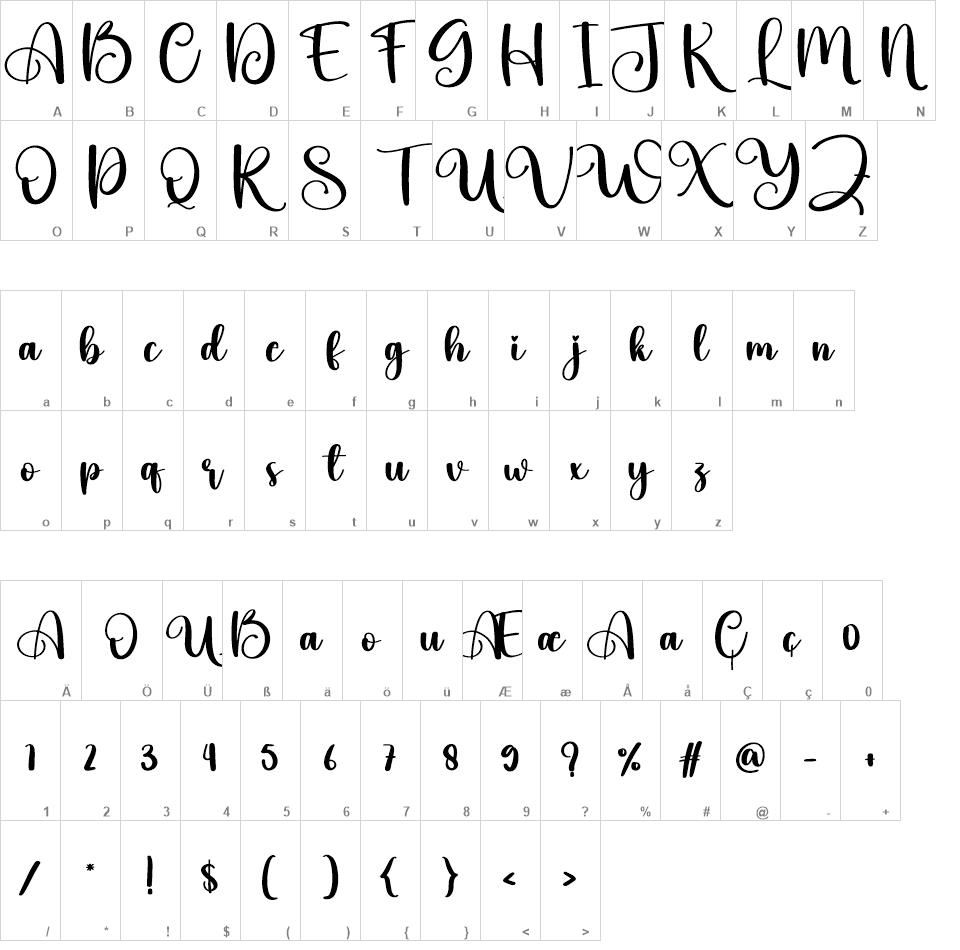 A B C D E F G H I J K L M N
A B C D E F G H I J K L M N
O P Q R S T U V W X Y Z
O P Q R S T U V W X Y Z
a b c d e f g h i j k l m n
a b c d e f g h i j k l m n
o p q r s t u v w x y z
o p q r s t u v w x y z
A O U B a o u Æ æ A a Ç ç 0
Ä Ö Ü ß ä ö ü Æ æ Å å Ç ç 0
1 2 3 4 5 6 7 8 9 ? % # @ - +
1 2 3 4 5 6 7 8 9 ? % # @ - +
/ * ! $ ( ) { } < >
/ * ! $ ( ) { } < >